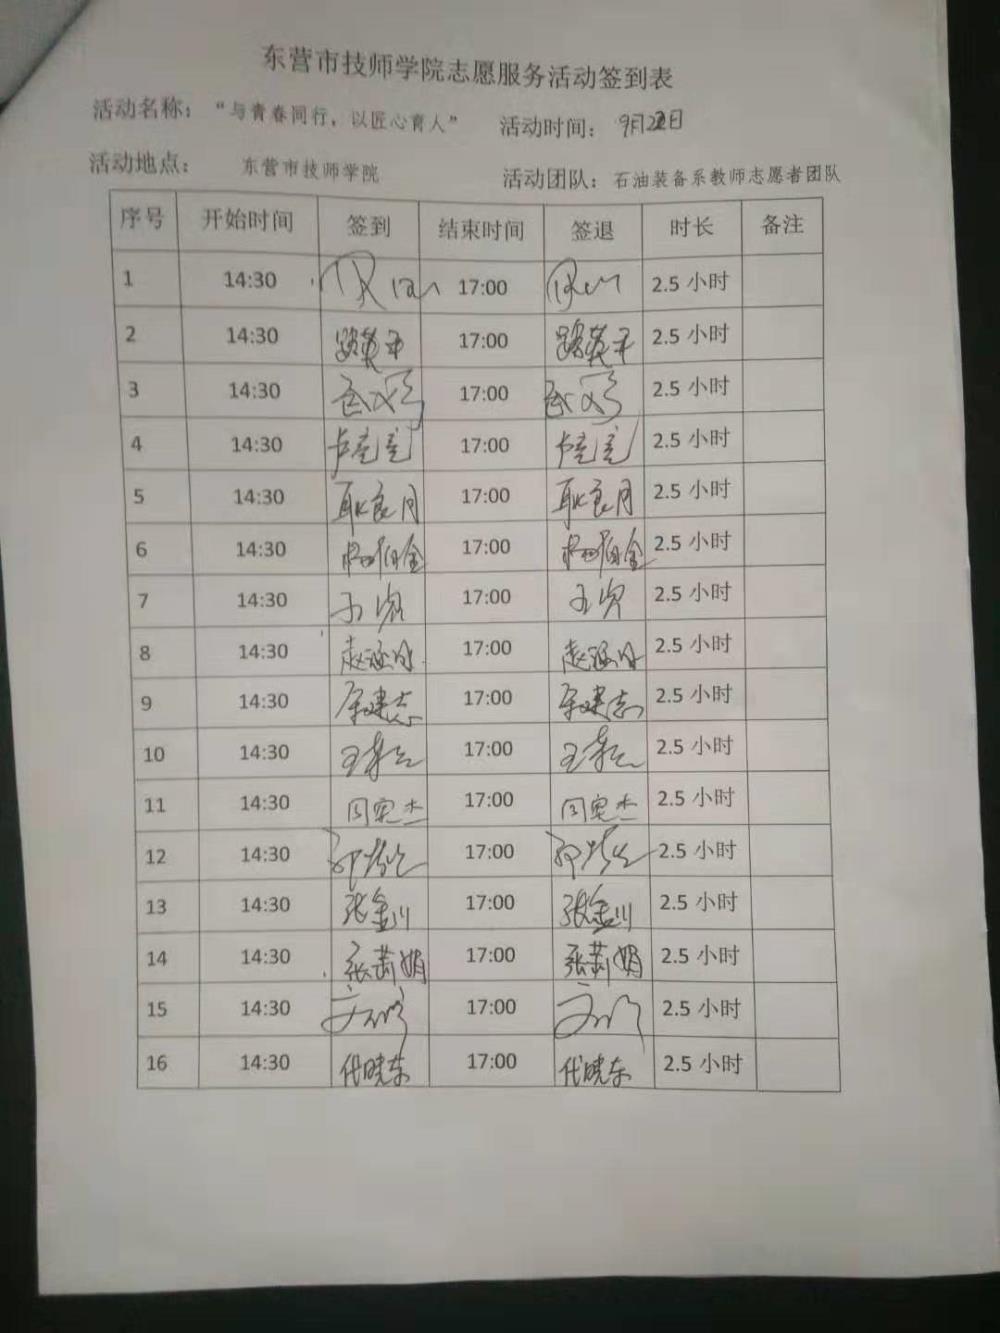 东营市技师学院志愿服务活动签到表
活动名称：“与青春同行，以匠心育人” 活动时间：9月22日
活动地点： 东营市技师学院 活动团队：石油装备系教师志愿者团队
序号 开始时间 签到 结束时间 签退 时长 备注
1 14:30 17:00 2.5 小时
2 14:30 路英平 17:00 路英平 2.5 小时
3 14:30 17:00 2.5 小时
4 14:30 17:00 2.5 小时
5 14:30 耿良月 17:00 耿良月 2.5 小时
6 14:30 17:00 2.5 小时
7 14:30 17:00 2.5 小时
8 14:30 17:00 2.5 小时
9 14:30 17:00 2.5 小时
10 14:30 17:00 2.5 小时
11 14:30 17:00 2.5 小时
12 14:30 17:00 2.5 小时
13 14:30 张金川 17:00 张金川 2.5 小时
14 14:30 17:00 2.5 小时
15 14:30 17:00 2.5 小时
16 14:30 代晓东 17:00 代晓东 2.5 小时